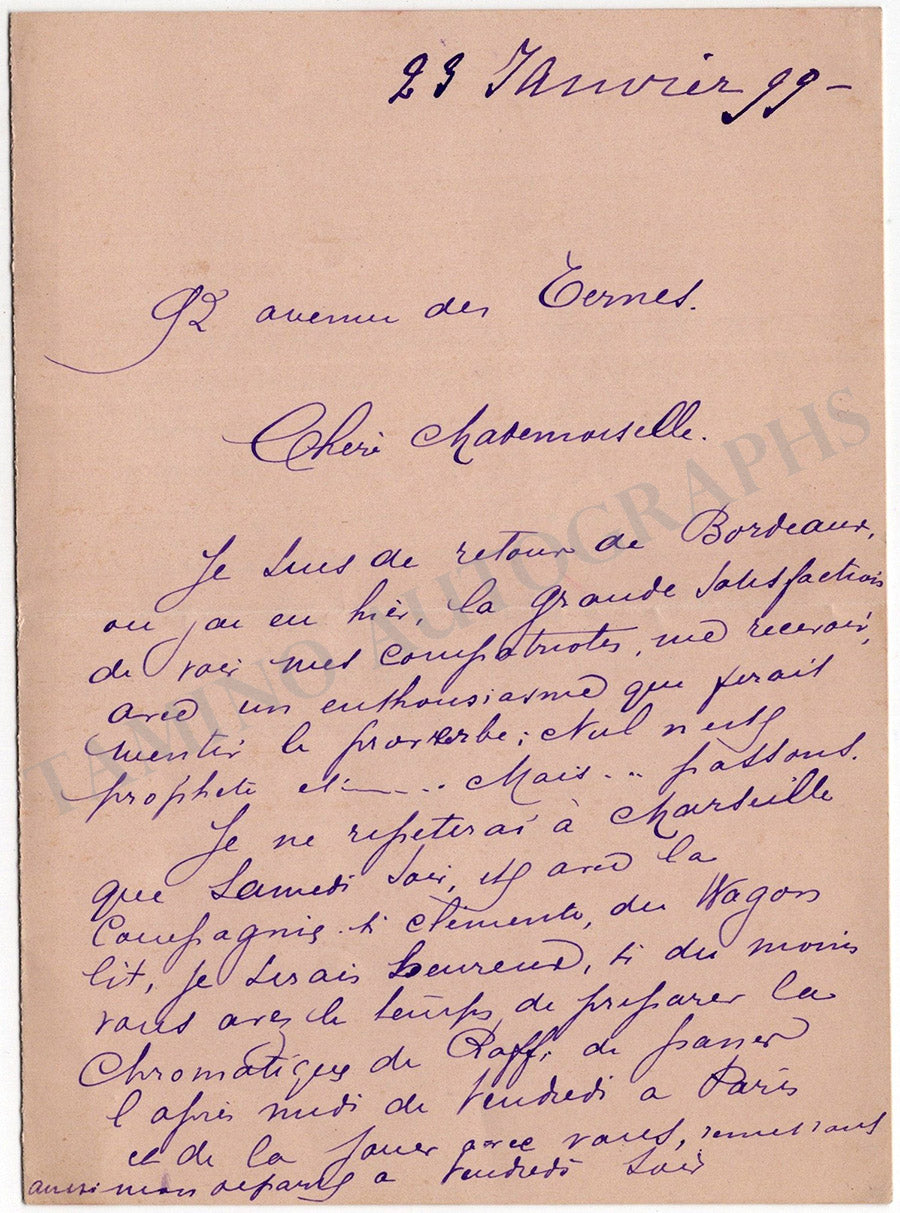 23 Janvier 99 -
92 avenue des Ternes.
Chère Mademoiselle.
Je suis de retour de Bordeaux,
ou j'ai eu hier, la grande satisfaction
de voir mes compatriotes, me recevoir,
avec un enthousiasme que ferait
mentir le proverbe; Nul n'est
prophete et ---.. Mais... passons.
Je ne repeterai à Marseille
que Samedi soir, et avec la
Compagnie si clémente, du Wagon
lit, je serais heureux, si du moins
vous avez le temps de preparer la
Chromatique de Raff, de passer
l'après midi de Vendredi a Paris
et de la jouer avec vous, remettant
aussi mon depart a Vendredi soir
TAMINO AUTOGRAPHS